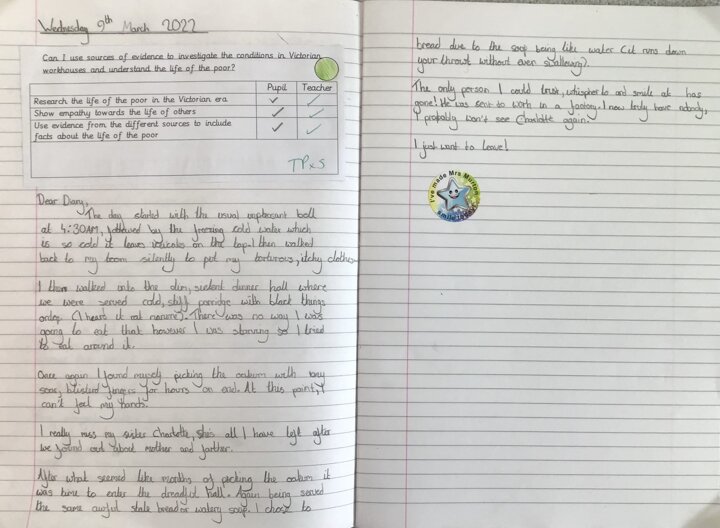 Wednesday 9th March 2022
Can I use sources of evidence to investigate the conditions in Victorian
workhouses and understand the life of the poor?
Pupil Teacher
Research the life of the poor in the Victorian era
Show empathy towards the life of others
Use evidence from the different sources to include
facts about the life of the poor
TPxS
Dear Diary,
The day started with the usual unpleasant bell
at 4:30AM, followed by the freezing cold water which
is so cold it leaves icicles on the tap. I then walked
back to my room silently to put my torturous, itchy clothes
I then walked onto the dim, silent dinner hall where
we were served cold, stiff porridge with black things
ontop. (I heard it rat manure). There was no way I was
going to eat that however I was starving so I tried
to eat around it.
Once again I found myself picking the oakum with my
sore, blistered fingers for hours on end. At this point, I
can't feel my hands.
I really miss my sister Charlotte, she's all I have left after
we found out about mother and farther.
After what seemed like months of picking the oakum it
was time to enter the dreadful hall. Again being served
the same awful stale bread or watery soup. I chose to
bread due to the soup being like water (it runs down
your throat without even swallowing).
The only person I could trust, whisper to and smile at has
gone! He was sent to work in a factory. I now truly have nobody,
I probably won't see Charlotte again.
I just want to leave!
I've made Mrs Murton
smile today